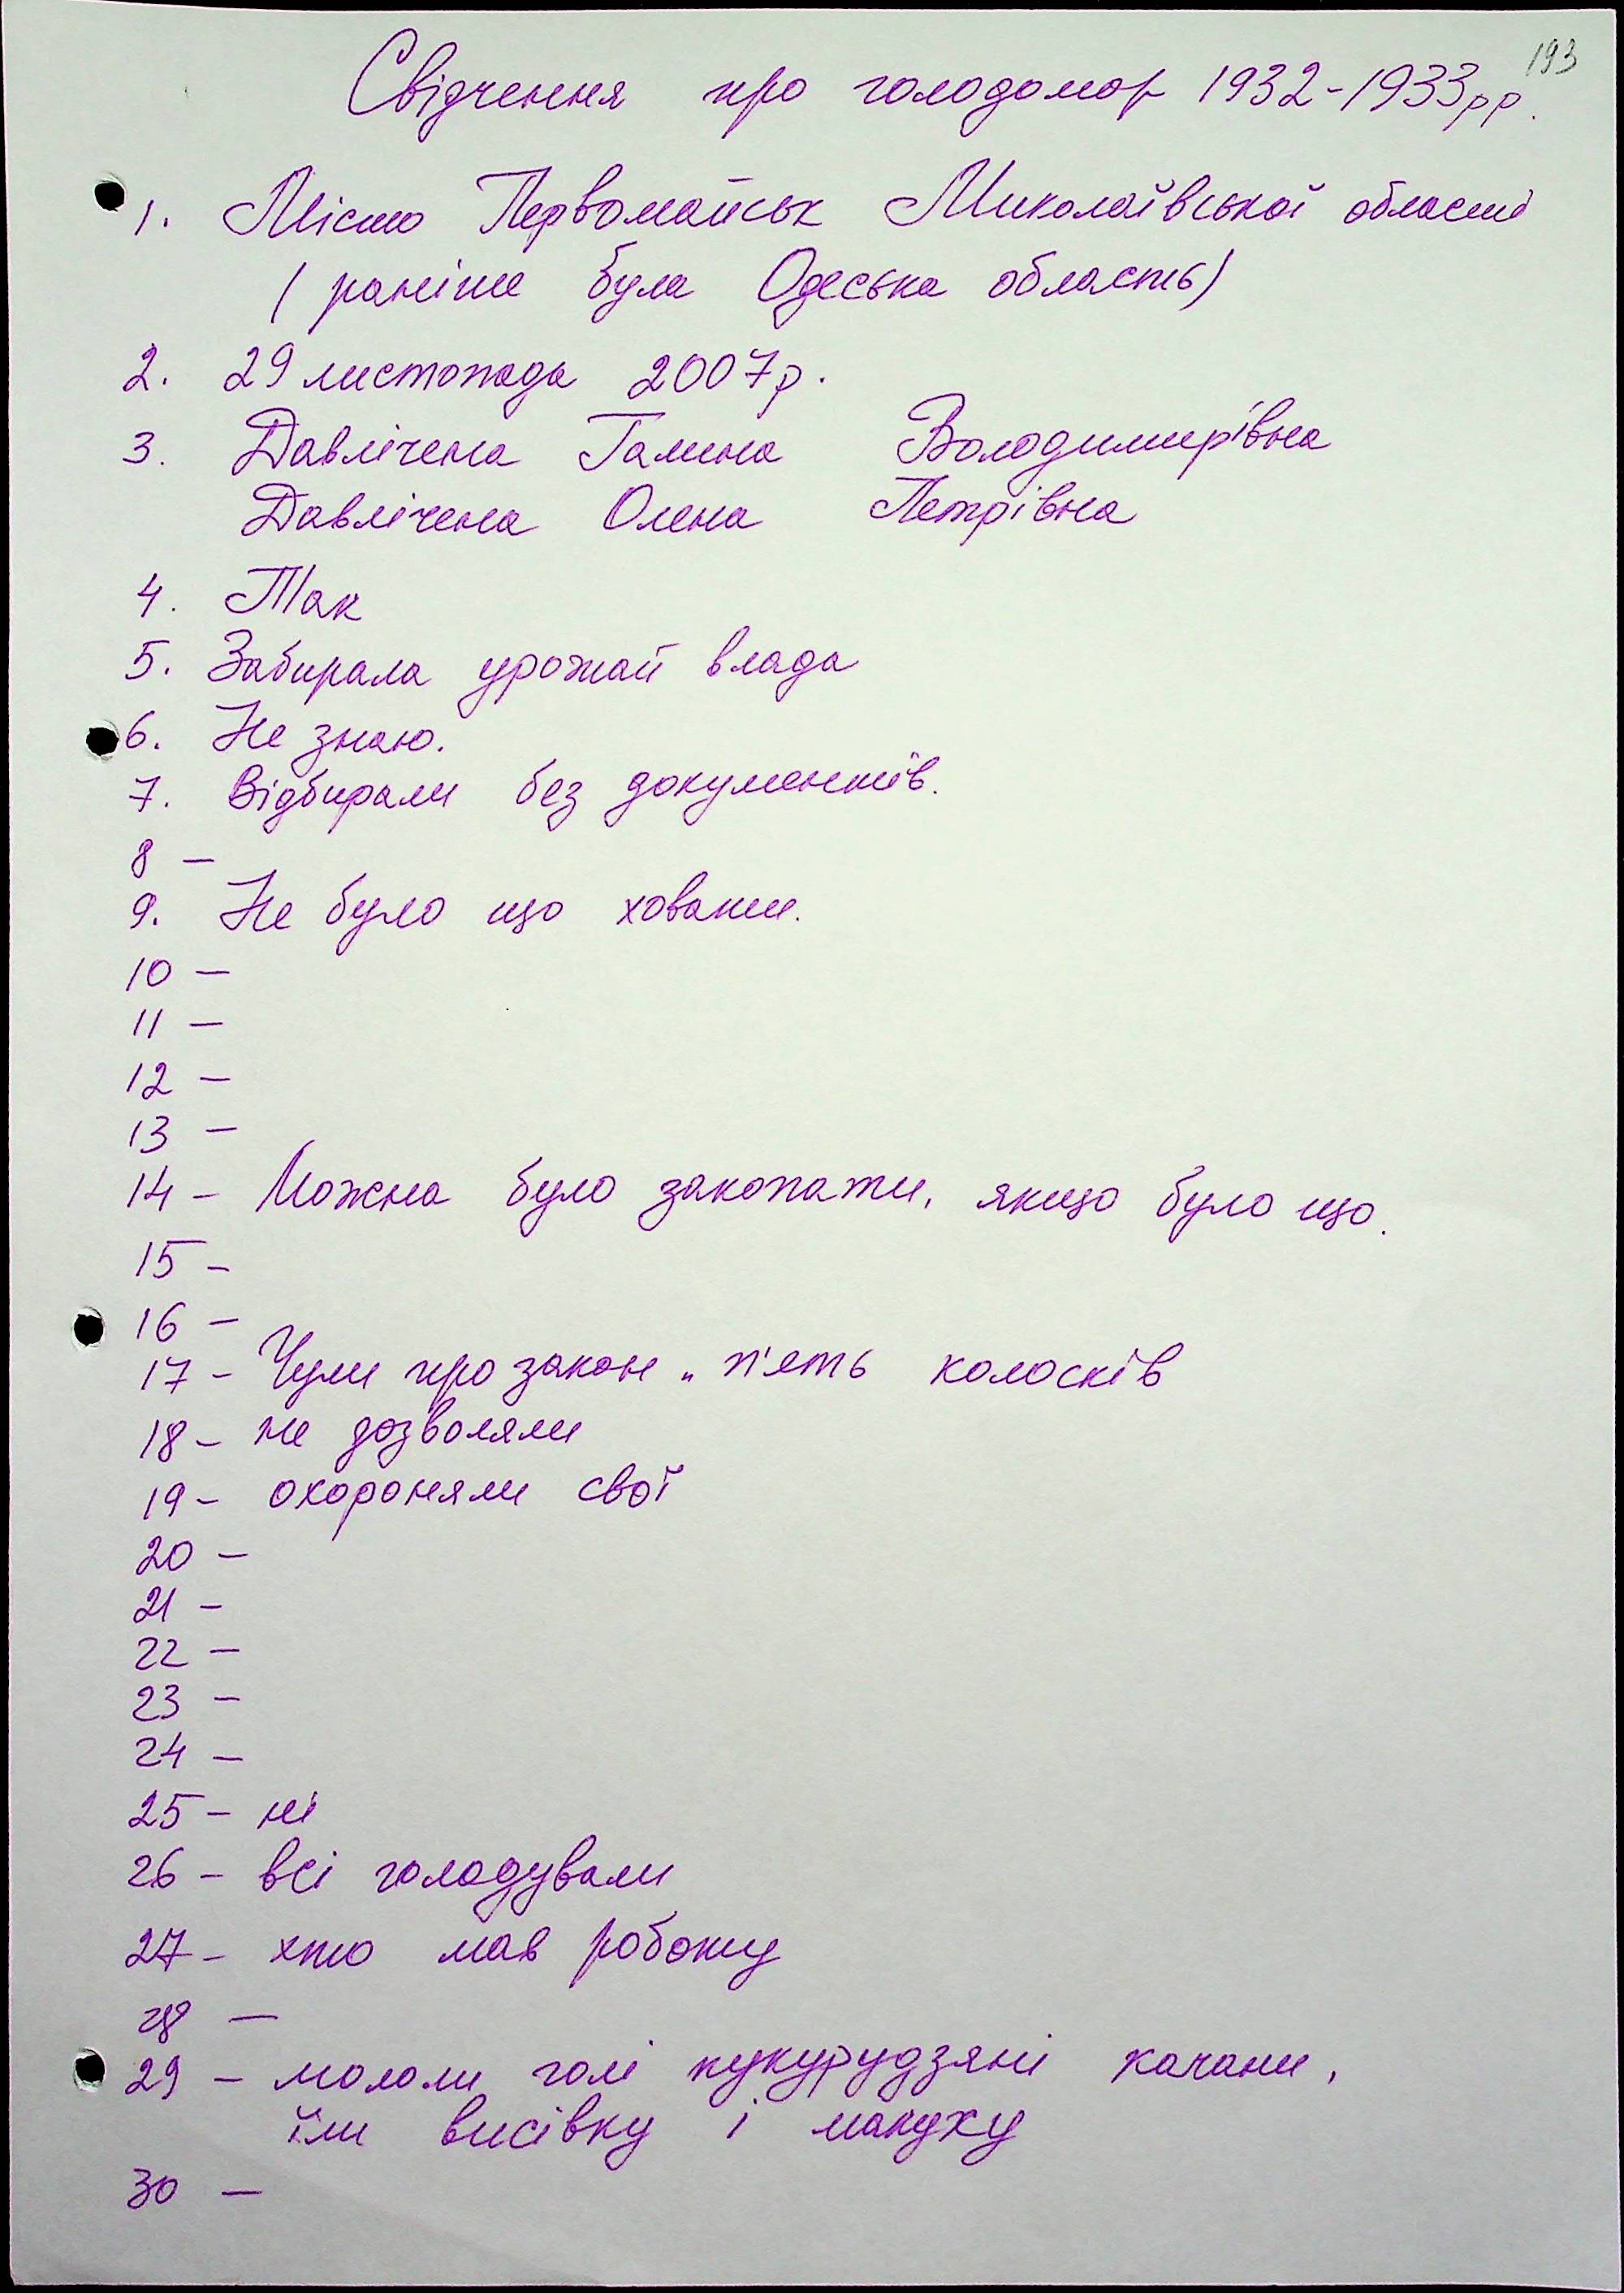 193
Свідчення про голодомор 1932-1933рр.
1. Місто Первомайськ Миколаївської області
(раніше була Одеська область)
2. 29 листопада 2007р.
3. Давлічена Галина Володимирівна
Давлічена Олена Петрівна
4. Так
5. Забирала урожай влада
6. Не знаю.
7. Відбирали без документів.
8 –
9. Не було що ховати.
10 –
11 –
12 –
13 –
14 – Можна було закопати, якщо було що.
15 –
16 –
17 – Чули про закон „п'ять колосків
18 – не дозволяли
19 – охороняли свої
20 –
21 –
22 –
23 –
24 –
25 – ні
26 – всі голодували
27 – хто мав роботу
28 –
29 – мололи голі кукурудзяні качани,
їли висівку і макуху
30 –